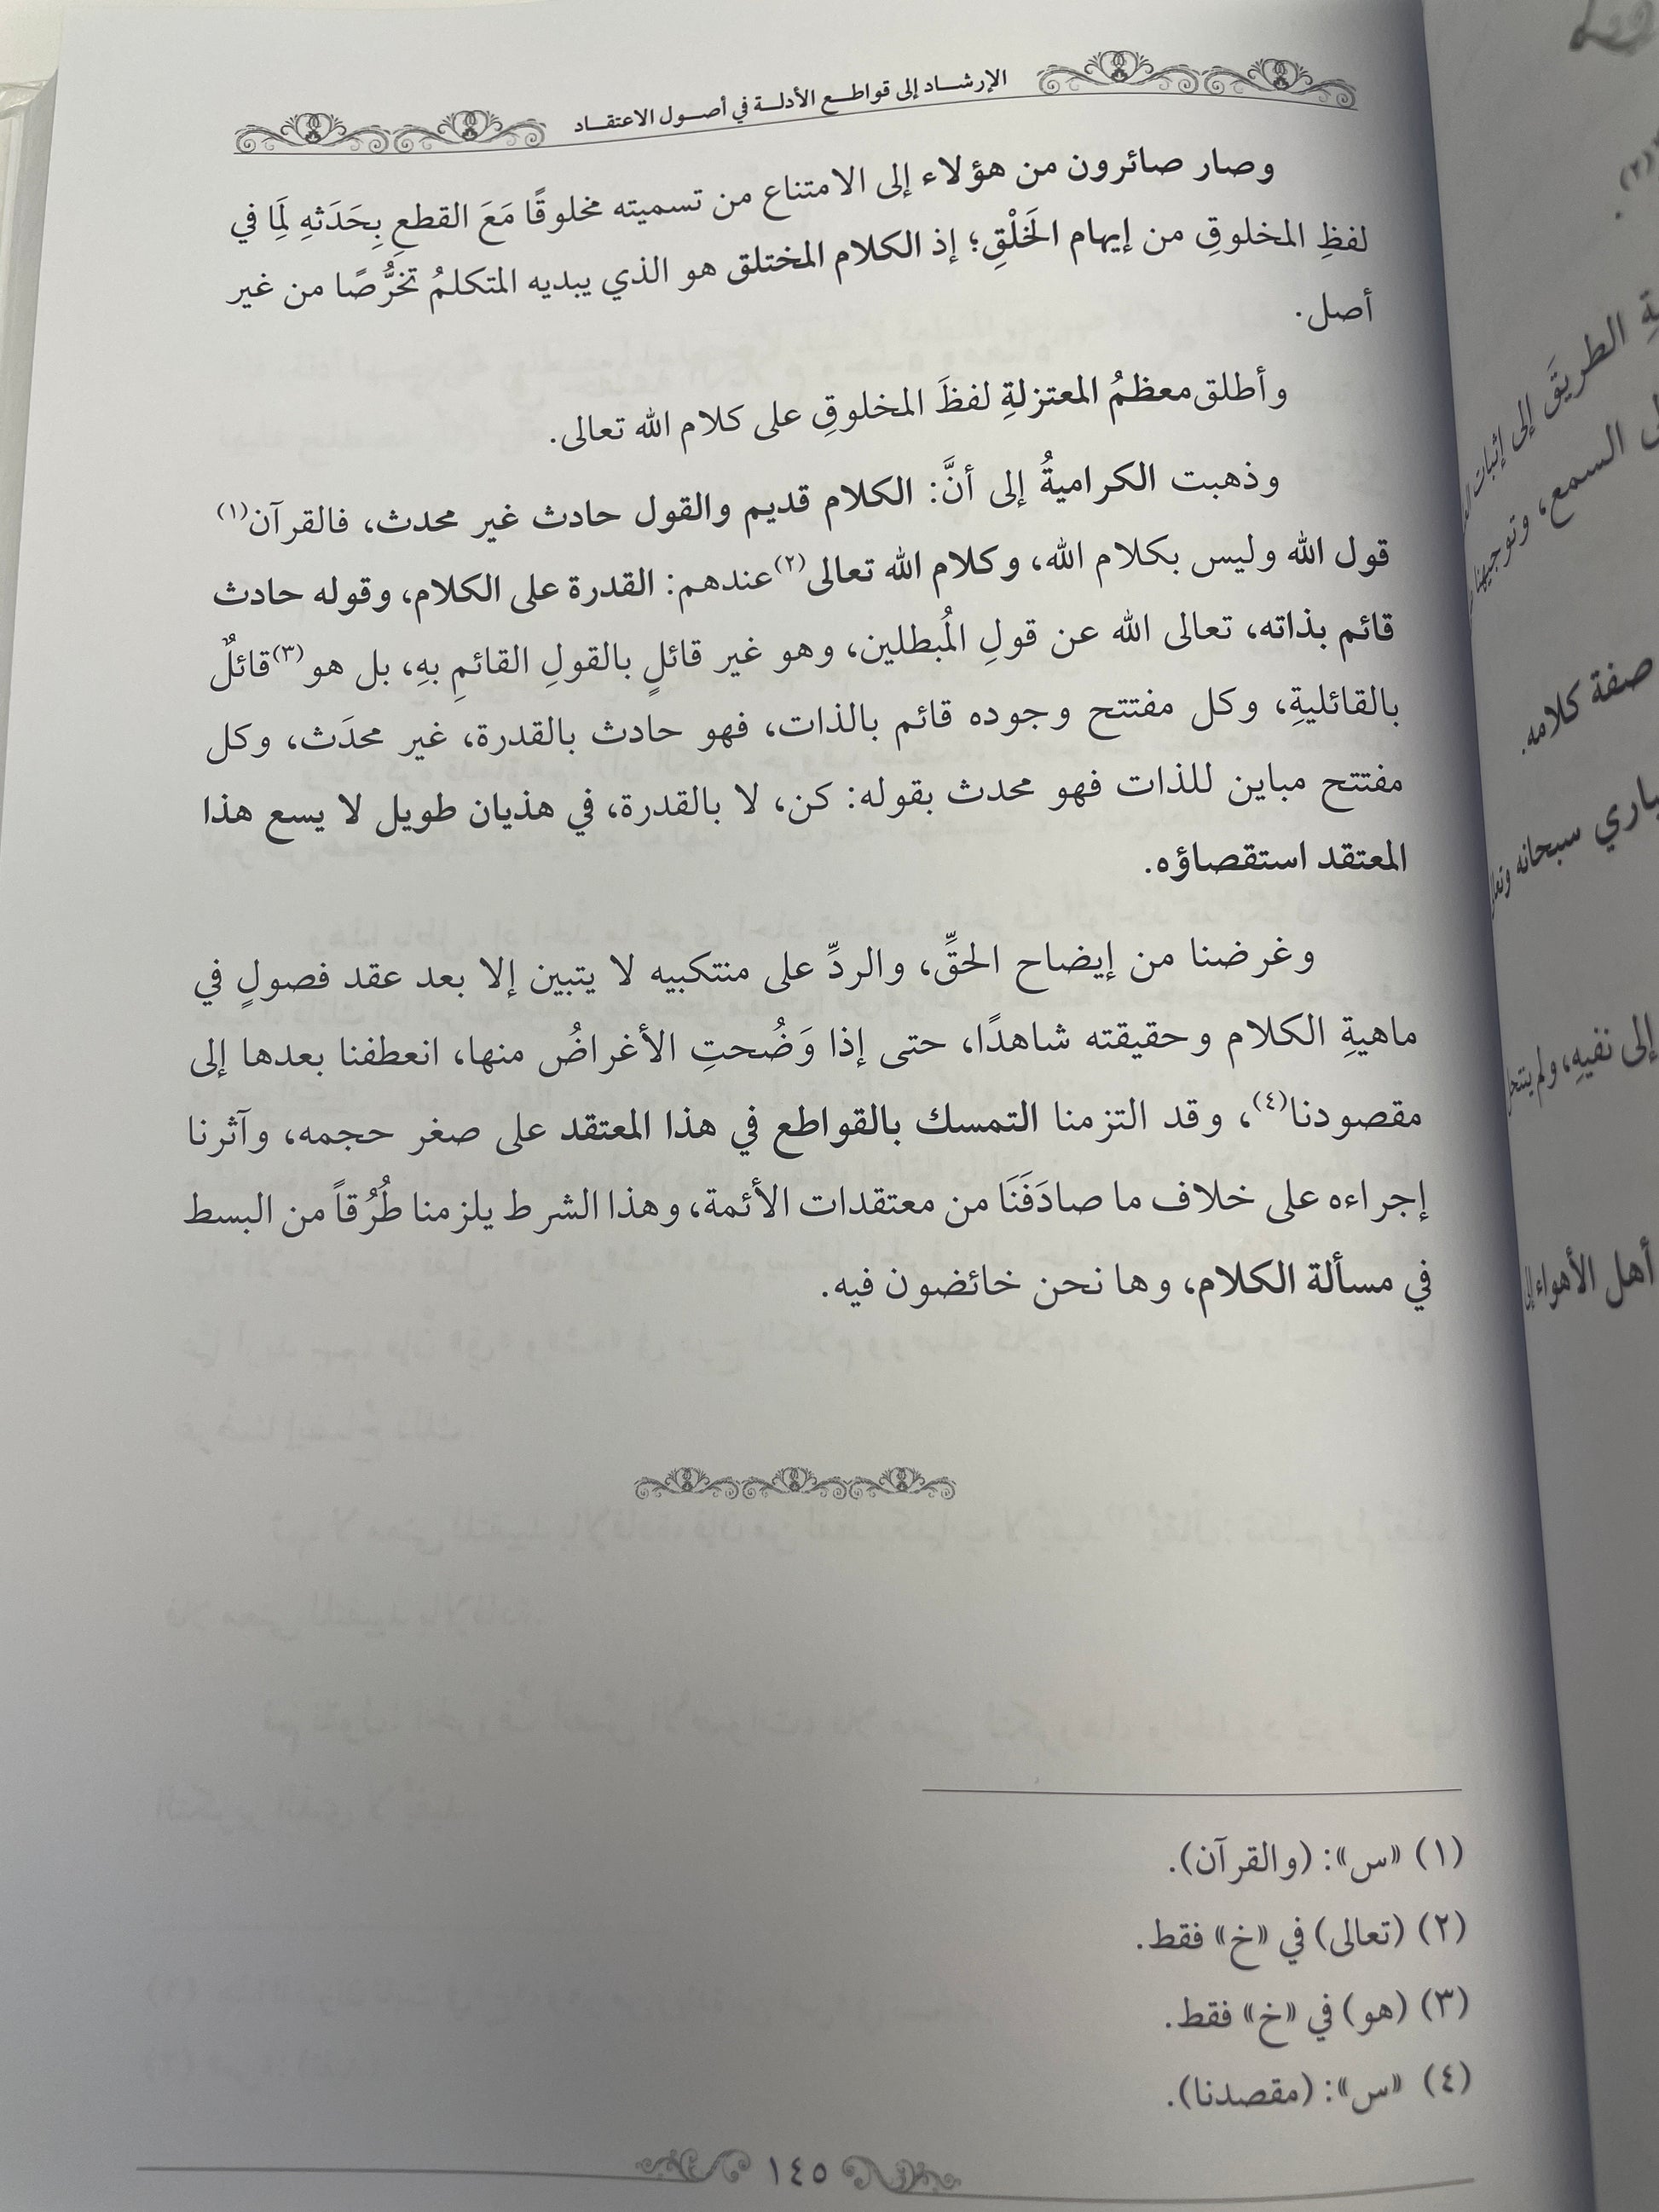 الإرشاد إلى قواطع الأدلة في أصول الاعتقاد
وصار صائرون من هؤلاء إلى الامتناع من تسميته مخلوقًا مَعَ القطعِ بِحَدَثِهِ لِمَا في
لفظِ المخلوقِ من إيهام الخَلْقِ؛ إذ الكلام المختلق هو الذي يبديه المتكلمُ تخرُّصًا من غير
أصل.
وأطلق معظمُ المعتزلةِ لفظَ المخلوقِ على كلام الله تعالى.
وذهبت الكراميةُ إلى أنَّ: الكلام قديم والقول حادث غير محدث، فالقرآن(١)
قول الله وليس بكلام الله، وكلام الله تعالى(٢) عندهم: القدرة على الكلام، وقوله حادث
قائم بذاته، تعالى الله عن قولِ المُبطلين، وهو غير قائلٍ بالقولِ القائمِ بهِ، بل هو(٣) قائلٌ
بالقائليةِ، وكل مفتتح وجوده قائم بالذات، فهو حادث بالقدرة، غير محدَث، وكل
مفتتح مباين للذات فهو محدث بقوله: كن، لا بالقدرة، في هذيان طويل لا يسع هذا
المعتقد استقصاؤه.
وغرضنا من إيضاح الحقِّ، والردِّ على منتكبيه لا يتبين إلا بعد عقد فصولٍ في
ماهيةِ الكلام وحقيقته شاهدًا، حتى إذا وَضُحتِ الأغراضُ منها، انعطفنا بعدها إلى
مقصودنا(٤)، وقد التزمنا التمسك بالقواطع في هذا المعتقد على صغر حجمه، وآثرنا
إجراءه على خلاف ما صادَفَنَا من معتقدات الأئمة، وهذا الشرط يلزمنا طُرُقاً من البسط
في مسألة الكلام، وها نحن خائضون فيه.
(١) «س»: (والقرآن).
(٢) (تعالى) في «خ» فقط.
(٣) (هو) في «خ» فقط.
(٤) «س»: (مقصدنا).
١٤٥
الطريق إلى إثبات
السمع، وتوجيهنا
صفة كلامه.
سبحانه
إلى نفيهِ، ولم
أهل الأهواء